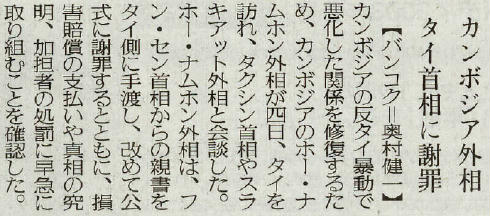 カンボジア外相
タイ首相に謝罪
【バンコク=奥村健一】
カンボジアの反タイ暴動で
悪化した関係を修復するた
め、カンボジアのホー・ナ
ムホン外相が四日、タイを
訪れ、タクシン首相やスラ
キアット外相と会談した。
ホー・ナムホン外相は、フ
ン・セン首相からの親書を
タイ側に手渡し、改めて公
式に謝罪するとともに、損
害賠償の支払いや真相の究
明、加担者の処罰に早急に
取り組むことを確認した。